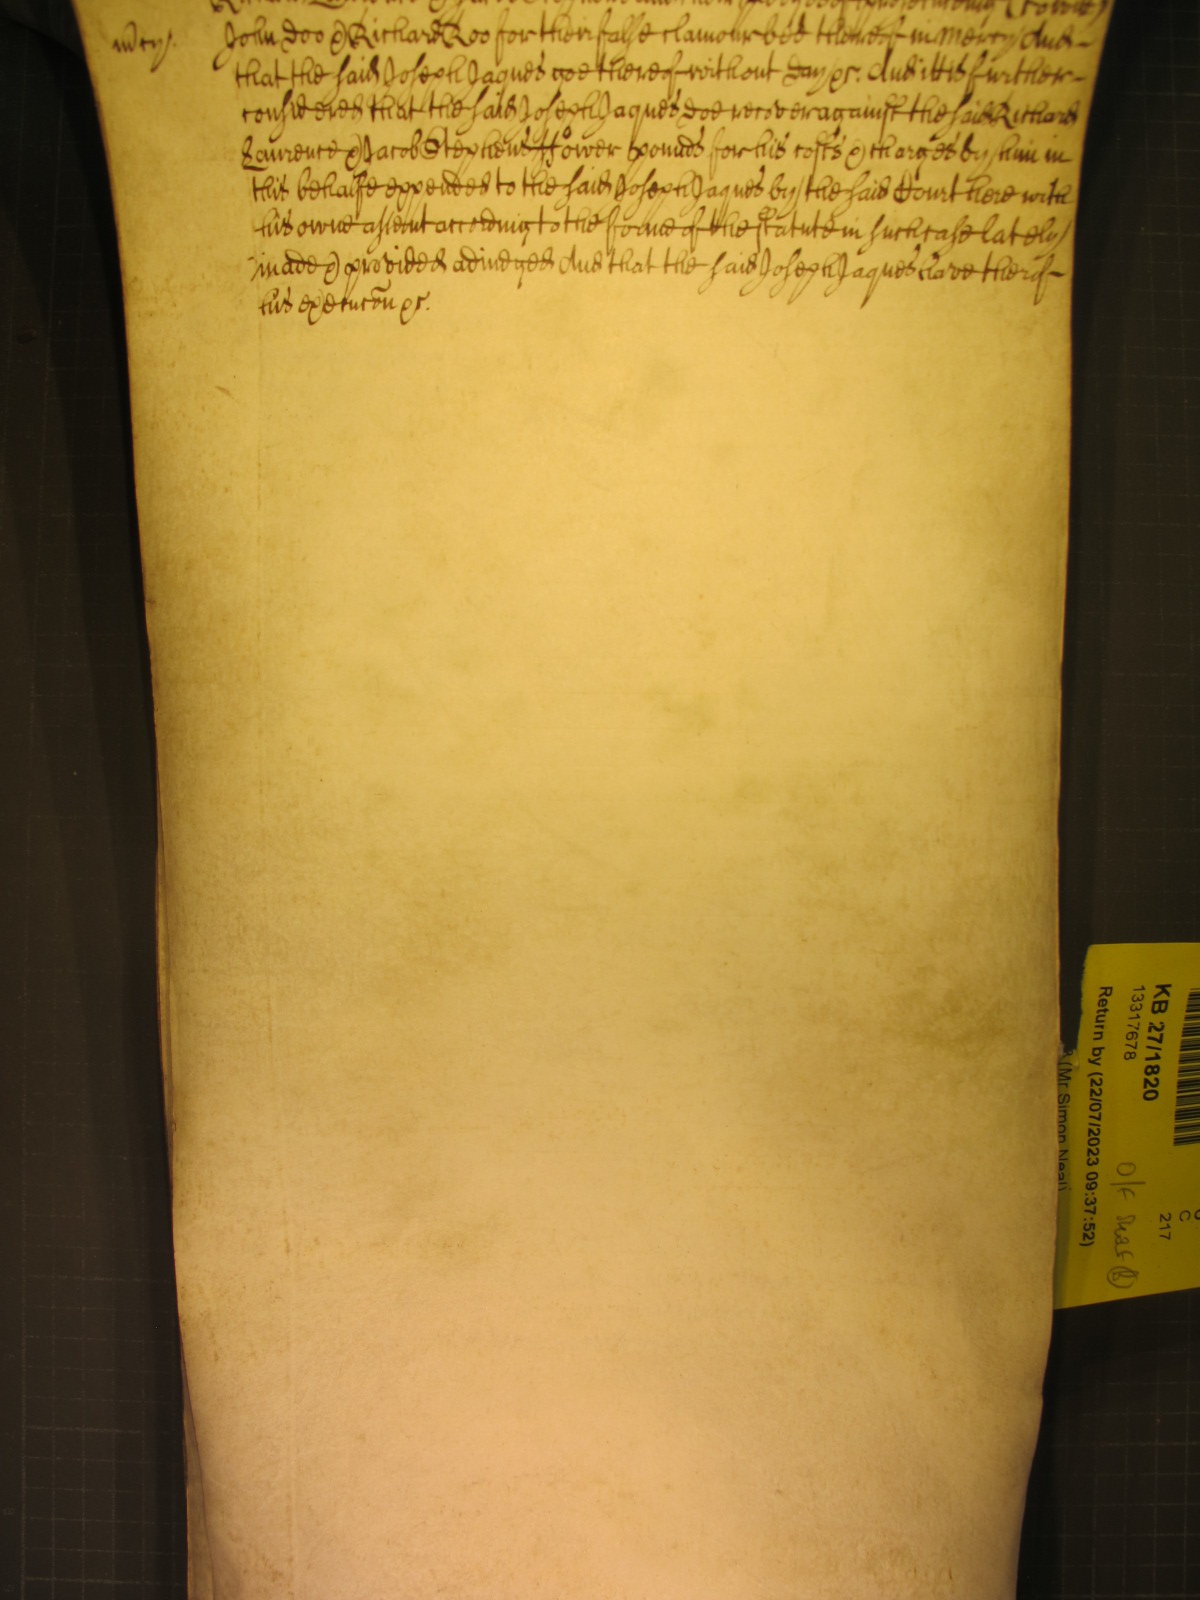 Richard Laurence & Jacob Stephens and their pledges of prosecuting (to witt)
mcy. John Doo & Richard Roo for their false clamour bee thereof in mercy And
that the said Joseph Jaques goe thereof without day &c. And itt is further
considered that the said Joseph Jaques doe recover against the said Richard
Laurence & Jacob Stephens ffower pounds for his costs & charges by him in
this behalfe expended to the said Joseph Jaques by the said Court here with
his owne assent according to the forme of the statute in such case lately
made & provided adiudged And that the said Joseph Jaques have thereof
his execucōn &c.
KB 27/1820
13317678
Return by (22/07/2023 09:37:52)
(Mr Simon Neal)
217
C